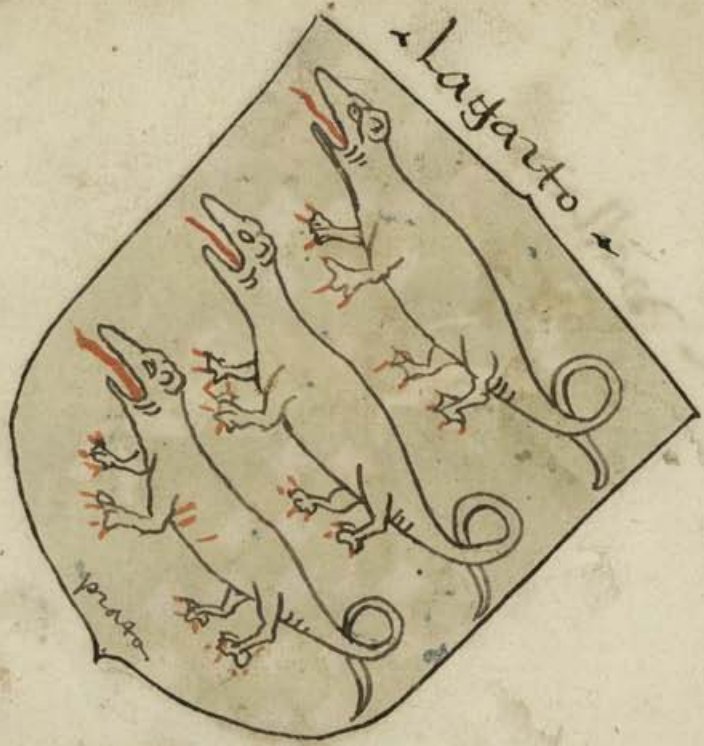 Lagarto
prata